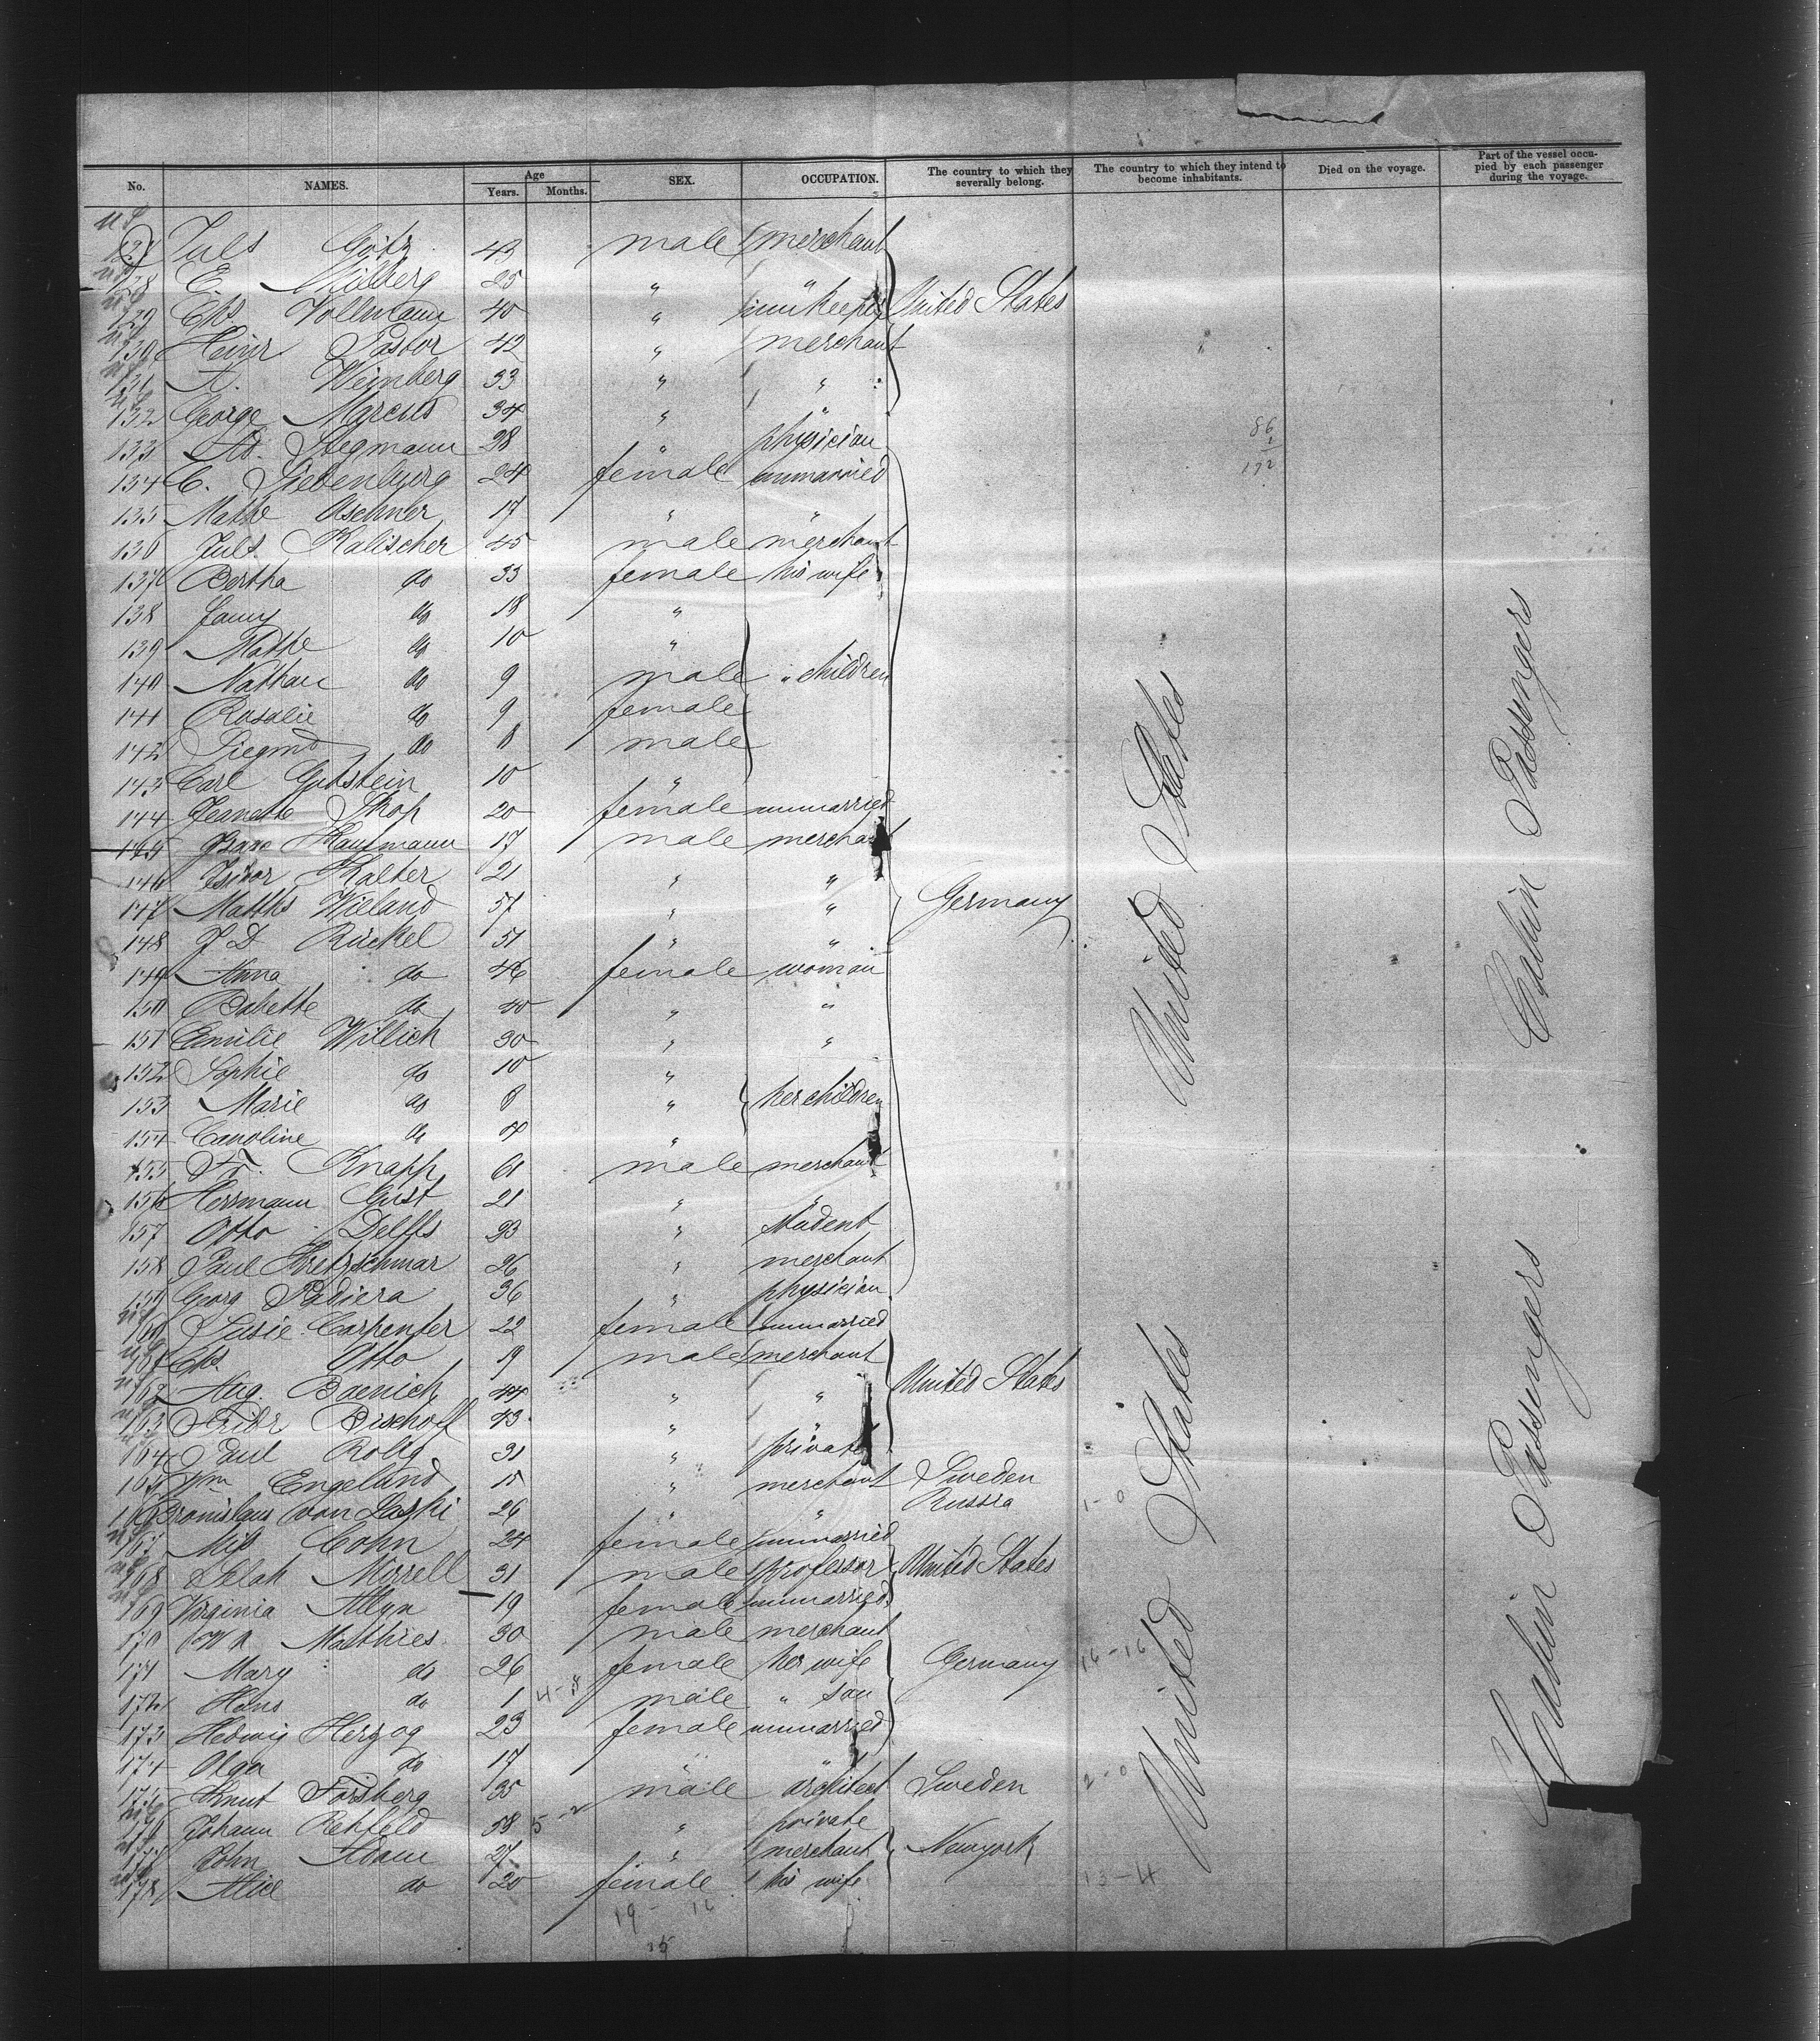 No. NAMES. Age Years. Months. SEX. OCCUPATION. The country to which they severally belong. The country to which they intend to become inhabitants. Died on the voyage. Part of the vessel occupied by each passenger during the voyage.
127 Juls Götz 43 male merchant
128 E. Milberg 25 " "
129 Chs Vollmann 40 " innkeeper United States
130 Heinr Pastor 42 " merchant
131 A. Weinberg 33 " "
132 George Marcus 34 " "
133 Ad. Stegmann 28 " physician
134 C. Siebenbürg 24 female unmarried
135 Mathe Aschner 17 " "
136 Juls. Kalischer 45 male merchant
137 Bertha do 33 female his wife
138 Fanny do 18 "
139 Mathe do 10 "
140 Nathan do 9 male " children
141 Rosalie do 9 female
142 Siegmd do 8 male
143 Carl Gutstein 10 "
144 Jeanette Skop 20 female unmarried
145 Isaac Kaufmann 17 male merchant
146 Isidor Kalter 21 " "
147 Matths Wieland 57 " " Germany
148 J D Rückel 51 " "
149 Anna do 46 female woman
150 Babette do 40 " "
151 Emilie Willich 30 " "
152 Sophie do 10 "
153 Marie do 8 " her children
154 Caroline do 4 "
155 Fr. Knapp 61 male merchant
156 Herrmann Gust 21 " "
157 Otto Delffs 23 " student
158 Paul Kretzschmar 26 " merchant
159 Georg Padiera 36 " physician
160 Susie Carpenter 22 female unmarried
161 Chs. Otto 19 male merchant
162 Aug. Baenich 44 " " United States
163 Fridr Bischoff 43 " "
164 Paul Roltg 31 " private
165 Wm Engelund 15 " merchant Sweden
166 Bronislaus von Laski 26 " " Russia 1-0
167 Miss Cohn 24 female unmarried
168 Selah Mirrell 31 male professor United States
169 Virginia Allyn 19 female unmarried
170 Matthies 30 male merchant
171 Mary do 26 female her wife Germany 16-16
172 Hans do 1 male " son
173 Hedwig Herzog 23 female unmarried
174 Olga do 17 " "
175 Knut Forsberg 35 male architect Sweden 2-0
176 Johann Rehfeld 58 " private
177 John Adam 27 " merchant Newyork
178 Alice do 20 female his wife 13-4
United States
United States
Cabin Passengers
Cabin Passengers
86
172
19 - 16
35